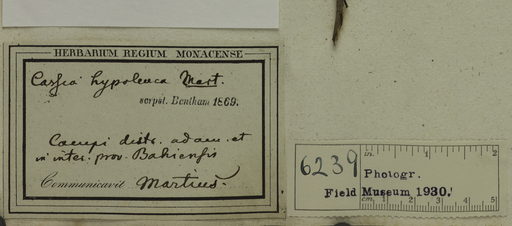 HERBARIUM REGIUM MONACENSE
Cassia hypoleuca Mart.
scrpsit. Bentham 1869.
Campi distr. adam. et
in inter. prov. Bahiensis
Communicavit Martius.
6239
in. 1 2
Photogr.
Field Museum 1930,
cm. 1 2 3 4 5